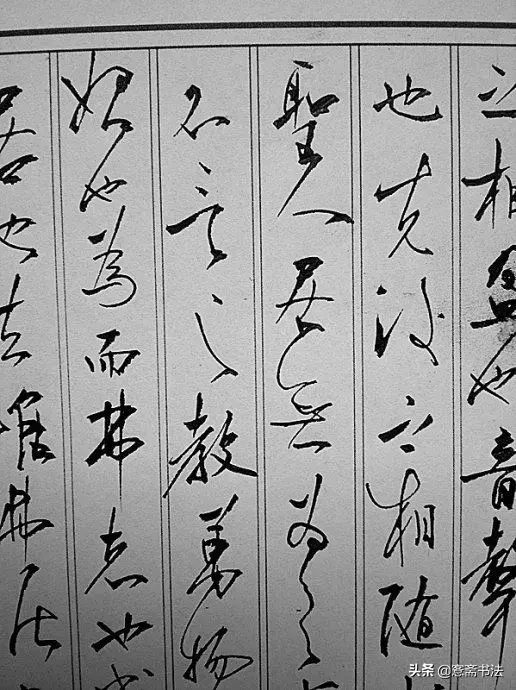 之相盈也音聲
也先後之相隨
聖人居無為之
不言之教萬物
始也為而弗志也成
居也夫唯弗居
头条 @愙斋书法